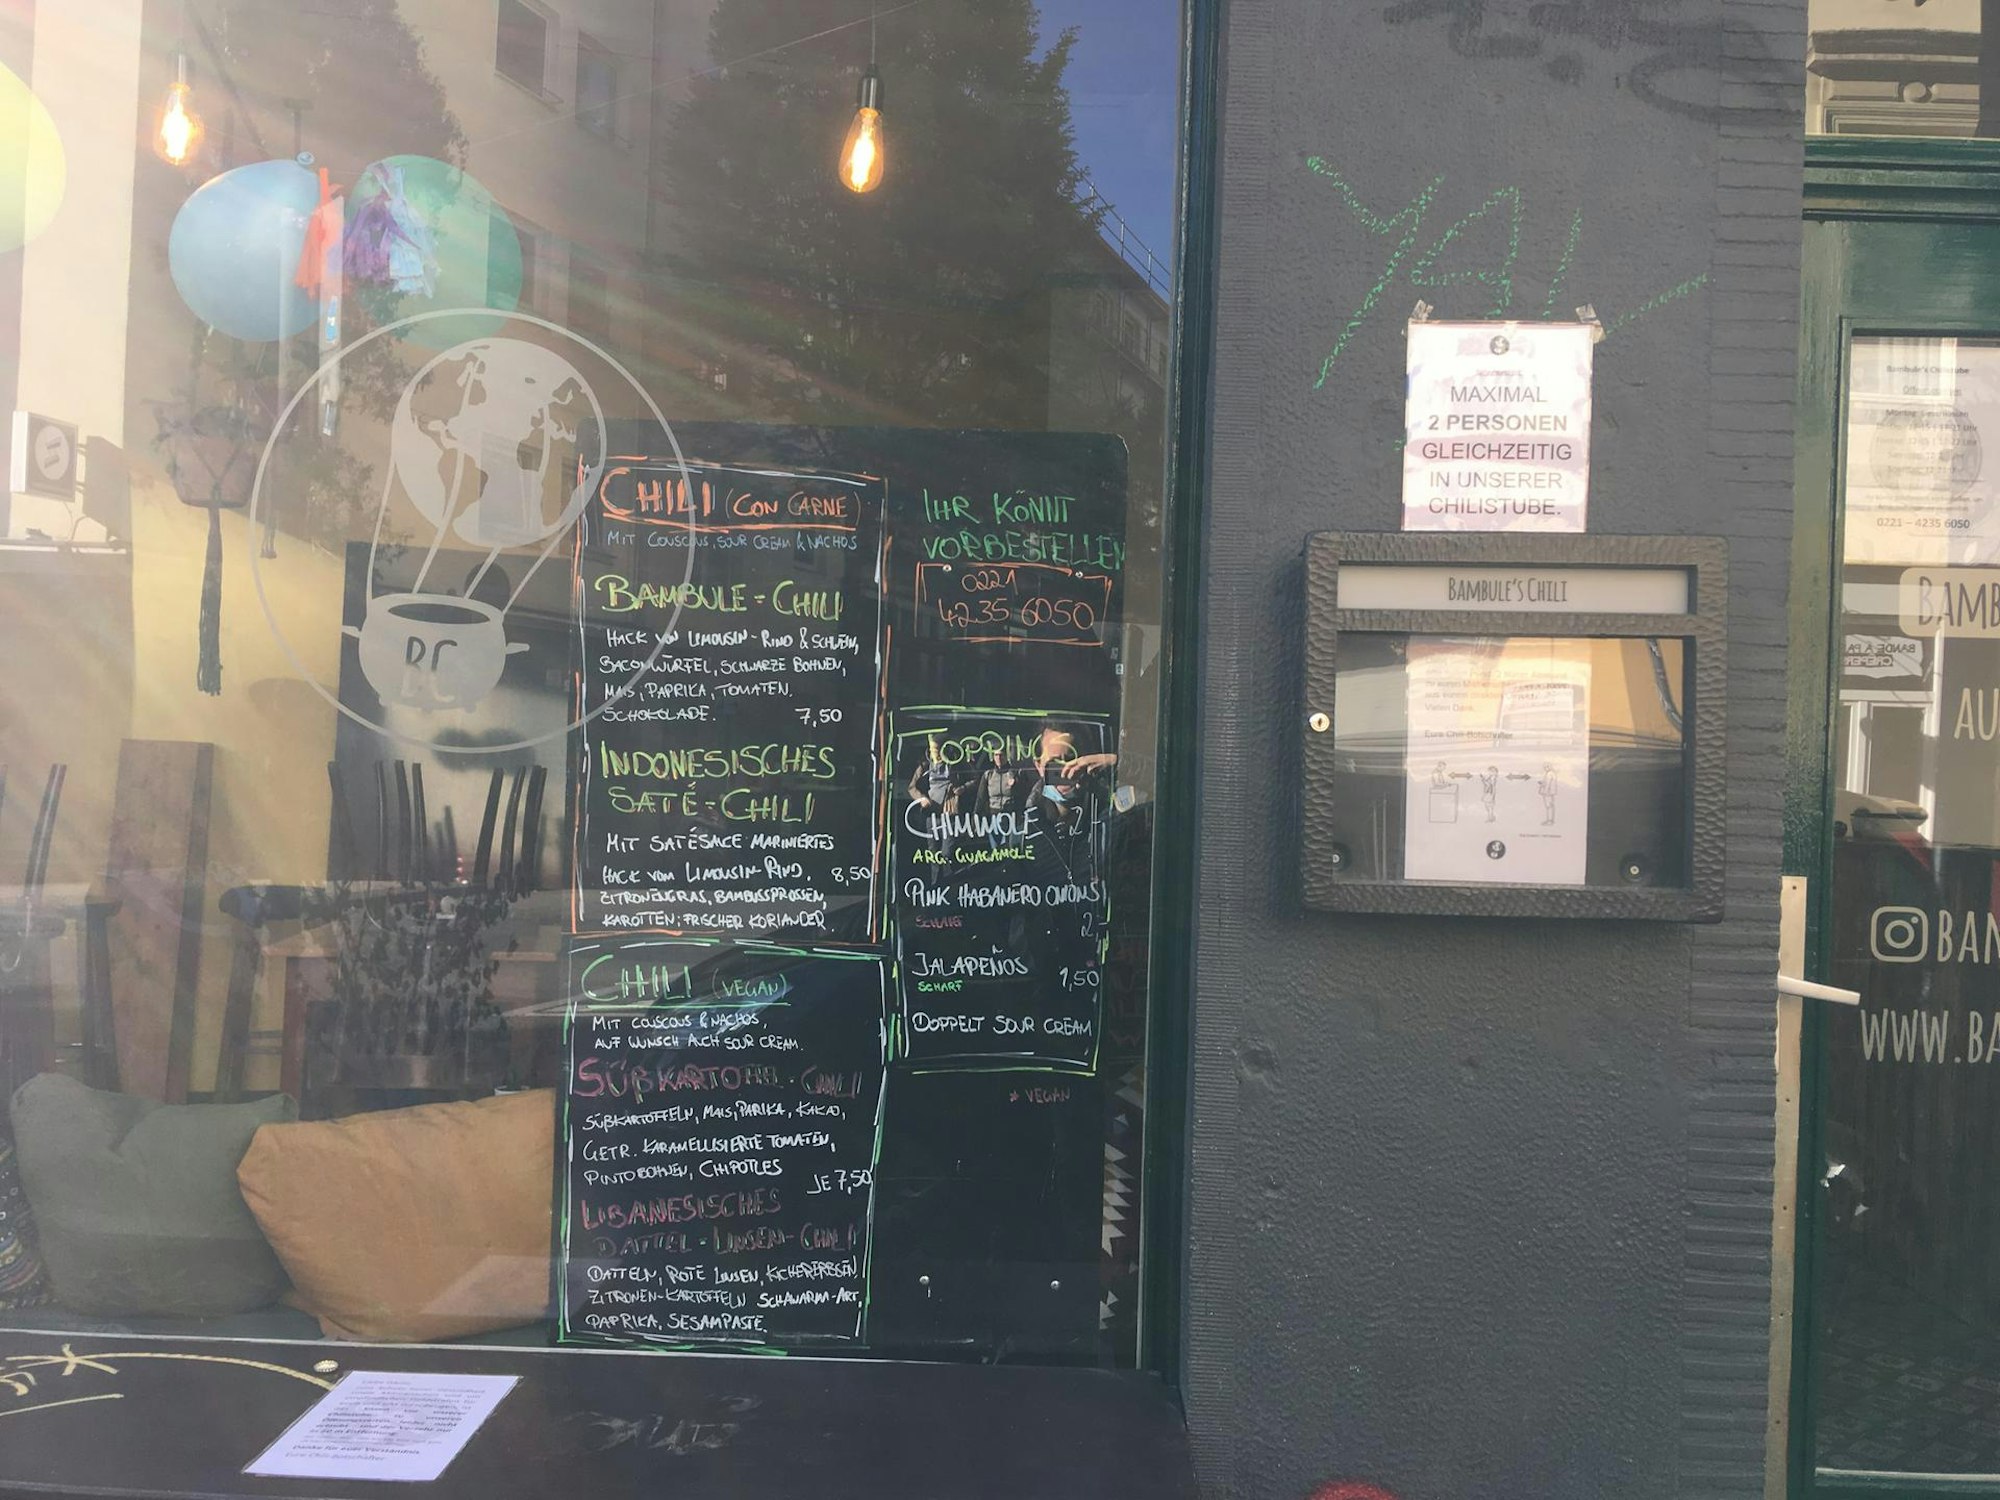 BC
CHILI (CON CARNE)
MIT COUSCOUS, SOUR CREAM & NACHOS
BAMBULE-CHILI
HACK VON LIMOUSIN-RIND & SCHWEIN,
BACONWÜRFEL, SCHWARZE BOHNEN,
MAIS, PAPRIKA, TOMATEN.
SCHOKOLADE. 7,50
INDONESISCHES
SATÉ-CHILI
MIT SATÉSAUCE MARINIERTES
HACK VOM LIMOUSIN-RIND, 8,50
ZITRONENGRAS, BAMBUSSPROSSEN,
KAROTTEN, FRISCHER KORIANDER.
CHILI (VEGAN)
MIT COUSCOUS & NACHOS,
AUF WUNSCH AUCH SOUR CREAM.
SÜßKARTOFFEL-CHILI
SÜßKARTOFFELN, MAIS, PARIKA, KAKAO,
GETR. KARAMELLISIERTE TOMATEN,
PINTOBOHNEN, CHIPOTLES
JE 7,50
LIBANESISCHES
DATTEL-LINSEN-CHILI
DATTELN, ROTE LINSEN, KICHERERBSEN,
ZITRONEN-KARTOFFELN SCHAWARMA-ART,
PAPRIKA, SESAMPASTE.
IHR KÖNNT
VORBESTELLEN
0221
4235 6050
TOPPINGS
CHIMIMOLE 2,-
ARG. GUACAMOLE
PINK HABANERO ONIONS
SCHARF 2,-
JALAPEÑOS
SCHARF 1,50
DOPPELT SOUR CREAM
* VEGAN
MAXIMAL
2 PERSONEN
GLEICHZEITIG
IN UNSERER
CHILISTUBE.
BAMBULE'S CHILI
Vielen Dank
Eure Chili-Botschafter
Bambule's Chilistube
0221 – 4235 6050
BAMB
AU
BAN
WWW.BA
Danke für euer Verständnis
Eure Chili-Botschafter